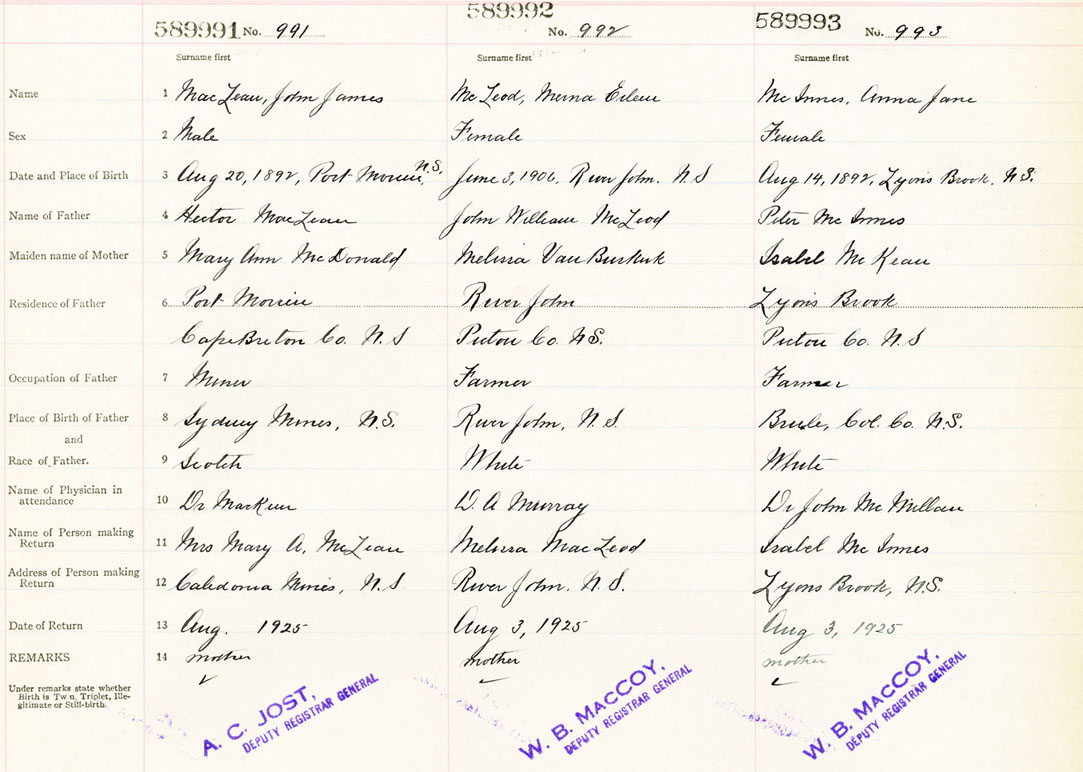 589991 No. 991
589992 No. 992
589993 No. 993
Surname first Surname first Surname first
Name 1 MacLean, John James McLeod, Merna Eileen McInnes, Anna Jane
Sex 2 Male Female Female
Date and Place of Birth 3 Aug 20, 1892, Port Morien, N.S. June 3, 1906, River John. N.S Aug 14, 1892, Lyons Brook, N.S.
Name of Father 4 Hector MacLean John William McLeod Peter McInnes
Maiden name of Mother 5 Mary Ann McDonald Melissa Van Buskirk Isabel McKean
Residence of Father 6 Port Morien River John Lyons Brook
Cape Breton Co. N.S Pictou Co. N.S. Pictou Co. N.S
Occupation of Father 7 Miner Farmer Farmer
Place of Birth of Father 8 Sydney Mines, N.S. River John, N.S. Brule, Col. Co. N.S.
and
Race of Father. 9 Scotch White White
Name of Physician in
attendance 10 Dr MacKeen D. A Murray Dr John McMillan
Name of Person making
Return 11 Mrs Mary A. McLean Melissa MacLeod Isabel McInnes
Address of Person making
Return 12 Caledonia Mines, N.S River John. N.S. Lyons Brook, N.S.
Date of Return 13 Aug. 1925 Aug 3, 1925 Aug 3, 1925
REMARKS 14 mother mother mother
Under remarks state whether
Birth is Tw n, Triplet, Ille-
gitimate or Still-birth.
A. C. JOST,
DEPUTY REGISTRAR GENERAL
W. B. MACCOY,
DEPUTY REGISTRAR GENERAL
W. B. MACCOY,
DEPUTY REGISTRAR GENERAL